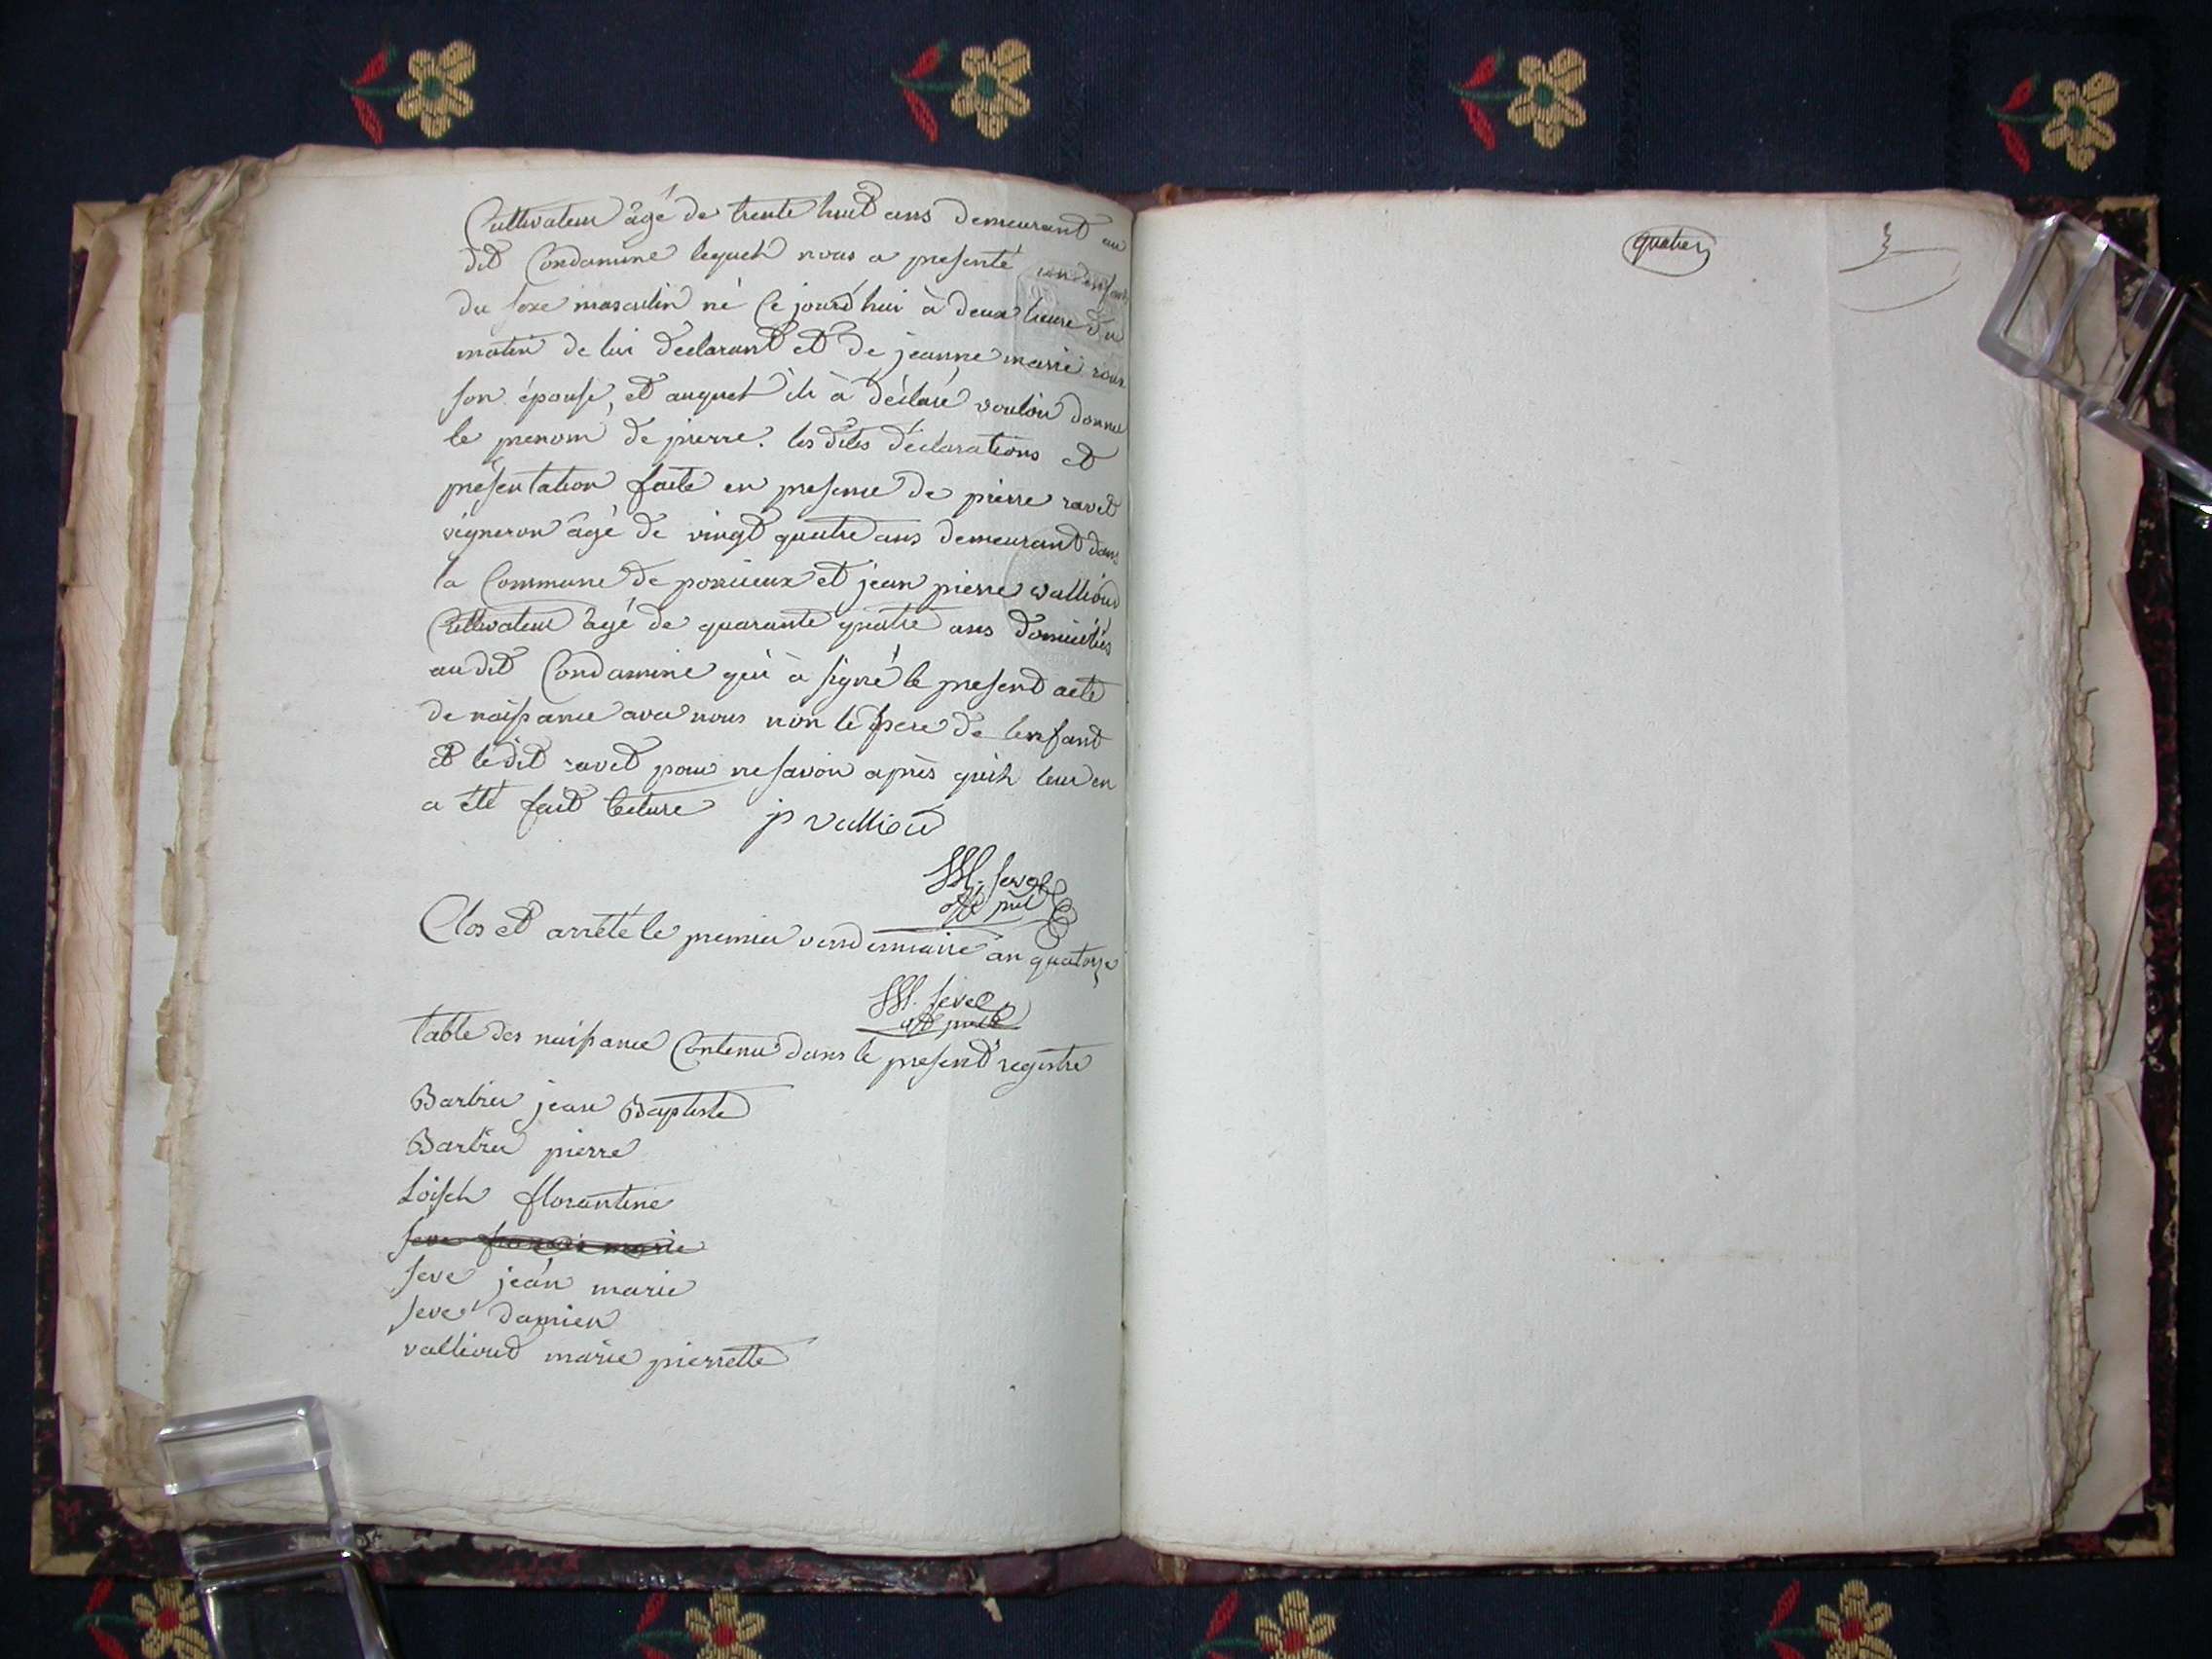 Cultivateur âgé de trente huit ans demeurant au
dit Condamine lequel nous a presenté un enfant
du sexe masculin né Ce jourd'hui à deux heure du
matin de lui declarant et de jeanne marie roux
son épouse, et auquel il à déclaré vouloir donner
le prenom de pierre. les dites déclarations et
présentation faite en presence de pierre ravet
vigneron âgé de vingt quatre ans demeurant dans
la Commune de et jean pierre vallioud
Cultivateur âgé de quarante quatre ans domiciliés
au dit Condamine qui à signé le present acte
de naissance avec nous non le pere de lenfant
et le dit ravet pour ne savoir après quil leur en
a été fait lecture jp vallioud
Clos et arrêté le premier vendemiaire an quatorze
table des naissance Contenu dans le present registre
Barbier jean Baptiste
Barbier pierre
florantine
seve marie
seve jean marie
seve damien
vallioud marie pierrette
quatre